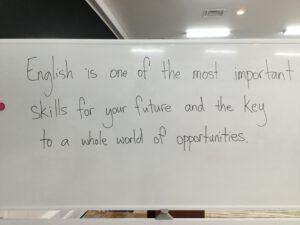 English is one of the most important
skills for your future and the key
to a whole world of opportunities.